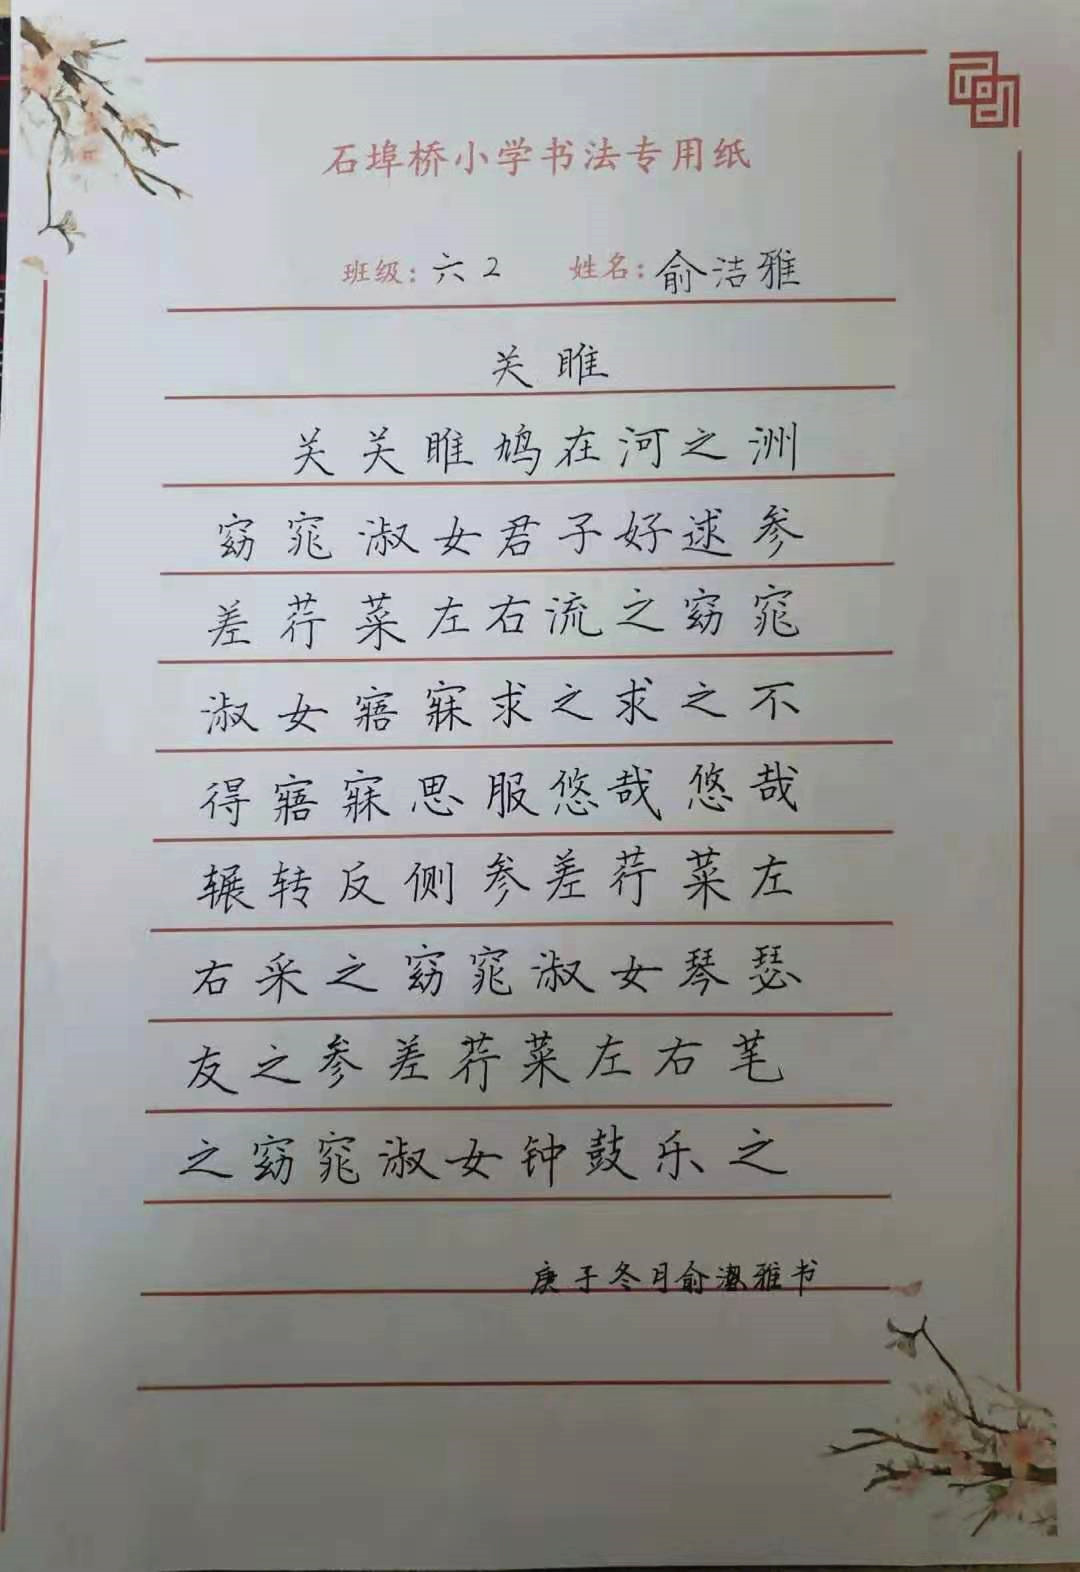 石埠桥小学书法专用纸
班级：六2 姓名：俞洁雅
关雎
关关雎鸠在河之洲
窈窕淑女君子好逑参
差荇菜左右流之窈窕
淑女寤寐求之求之不
得寤寐思服悠哉悠哉
辗转反侧参差荇菜左
右采之窈窕淑女琴瑟
友之参差荇菜左右芼
之窈窕淑女钟鼓乐之
庚子冬月俞洁雅书